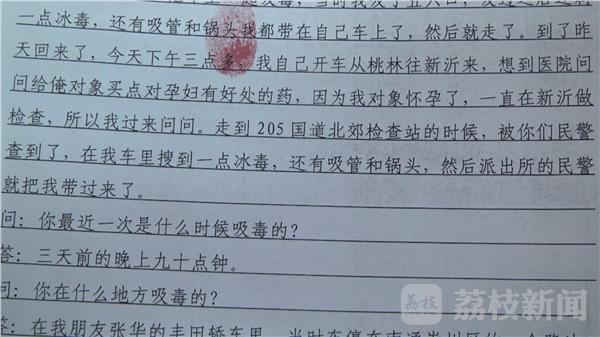 一点冰毒，还有吸管和锅头我都带在自己车上了，然后就走了。到了昨
天回来了，今天下午三点多，我自己开车从桃林往新沂来，想到医院问
问给俺对象买点对孕妇有好处的药，因为我对象怀孕了，一直在新沂做
检查，所以我过来问问。走到 205 国道北郊检查站的时候，被你们民警
查到了，在我车里搜到一点冰毒，还有吸管和锅头，然后派出所的民警
就把我带过来了。
问：你最近一次是什么时候吸毒的？
答：三天前的晚上九十点钟。
问：你在什么地方吸毒的？
答：在我朋友张华的丰田轿车里，当时车停在南通崇川区的一个路边
荔枝
荔枝新闻